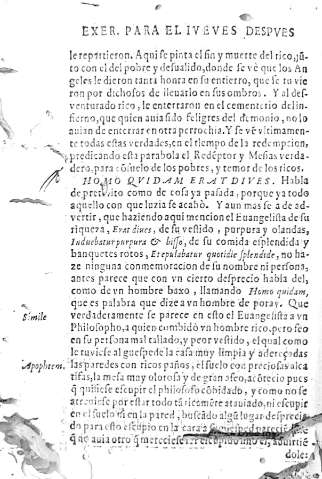 EXER. PARA EL IVEVES DESPVES
le repartieron. Aqui se pinta el fin y muerte del rico, jū-
to con el del pobre y desualido, donde se vè que los An
geles le dieron tanta honra en su entierro, que se tuvie
ron por dichosos de lleuarlo en sus ombros. Y al des-
venturado rico, le enterraron en el cementerio del in-
fierno, que quien auia sido feligres del demonio, no lo
auian de enterrar en otra perrochia. Y se vè vltimamen-
te todas estas verdades, en el tiempo de la redempcion,
predicando esta parabola el Redētor y Mesias verda-
dero, para cōsuelo de los pobres, y temor de los ricos.
HOMO QVIDAM ERAT DIVES. Habla
de preterito como de cosa ya pasada, porque ya todo
aquello con que luzia se acabò. Y aun mas se a de ad-
vertir, que haziendo aqui mencion el Euangelista de su
riqueza, Erat diues, de su vestido, purpura y olandas,
Induebatur purpura & bisso, de su comida esplendida y
banquetes rotos, Et epulabatur quotidie splendide, no ha-
ze ninguna conmemoracion de su nombre ni persona,
antes parece que con vn cierto desprecio habla del,
como de vn hombre baxo, llamando Homo quidam,
que es palabra que dize a vn hombre de poray. Que
verdaderamente se parece en esto el Euangelista a vn
Simile
Philosopho, a quien combidò vn hombre rico, pero feo
en su persona mal tallado, y peor vestido, el qual como
le tuviese al guesped e la casa muy limpia y adereçadas
Apophtem.
las paredes con ricos paños, el suelo con preciosas alca
tifas, la mesa muy olorosa y de gran aseo, acōtecio pues
q̃ quiriese escupir el philosofo cōbidado, y como no se
atreuiese por estar todo tā ricamēte atauiado, ni escupir
en el suelo ni en la pared, buscādo algū lugar desprecia
do para esto escupio en la cara
q̃ no auia otro q̃ mereciese
dole: